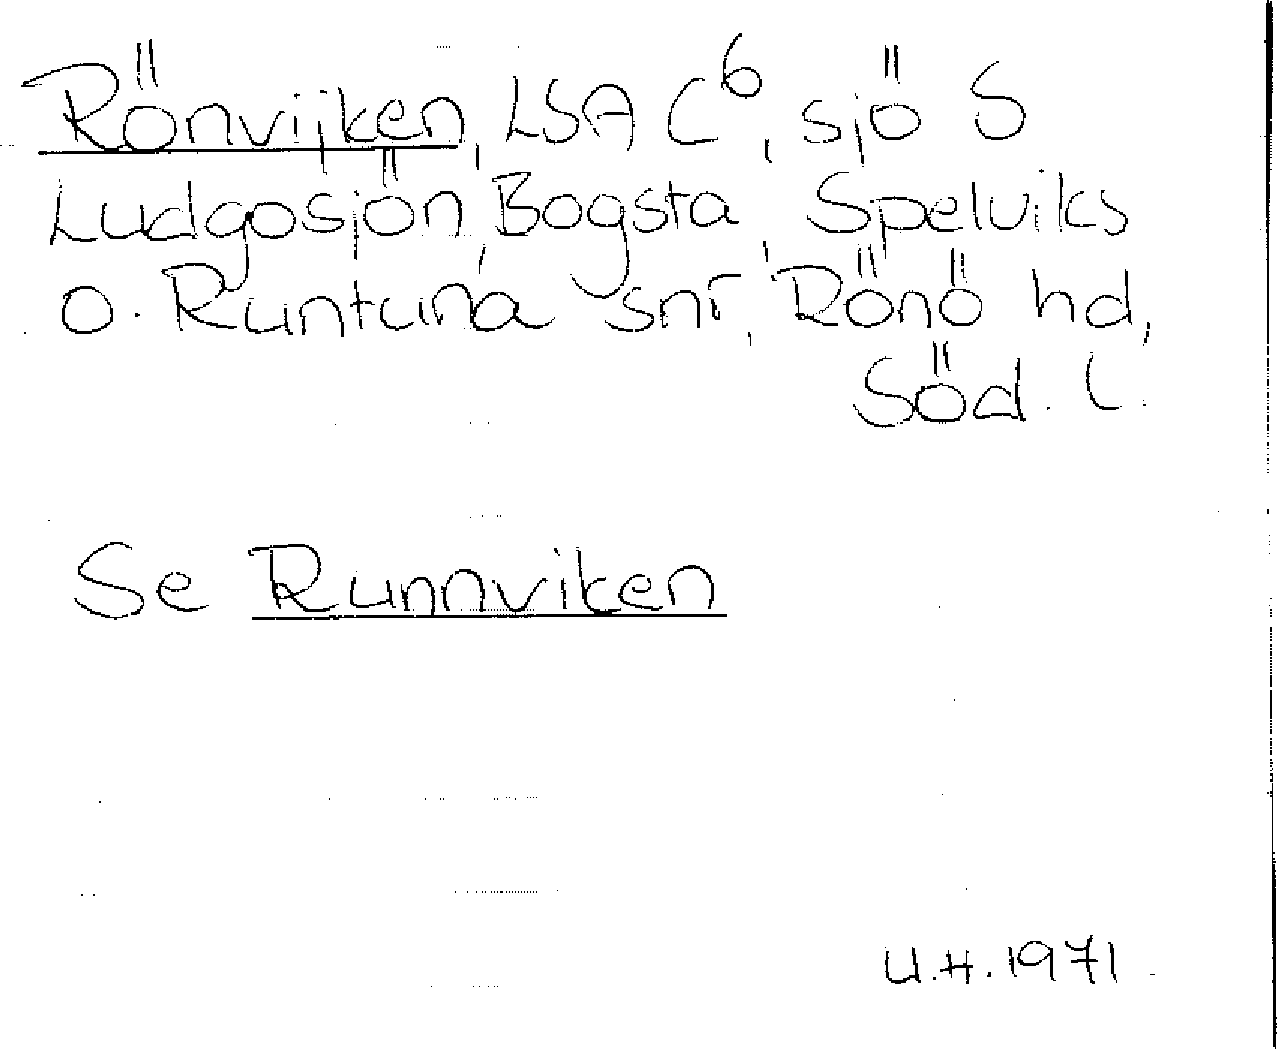 Rönvijken, LSA C6, sjö S
Ludgosjön, Bogsta, Spelviks
o. Runtuna snr, Rönö hd,
Söd. l.
Se Runnviken
U.H. 1971